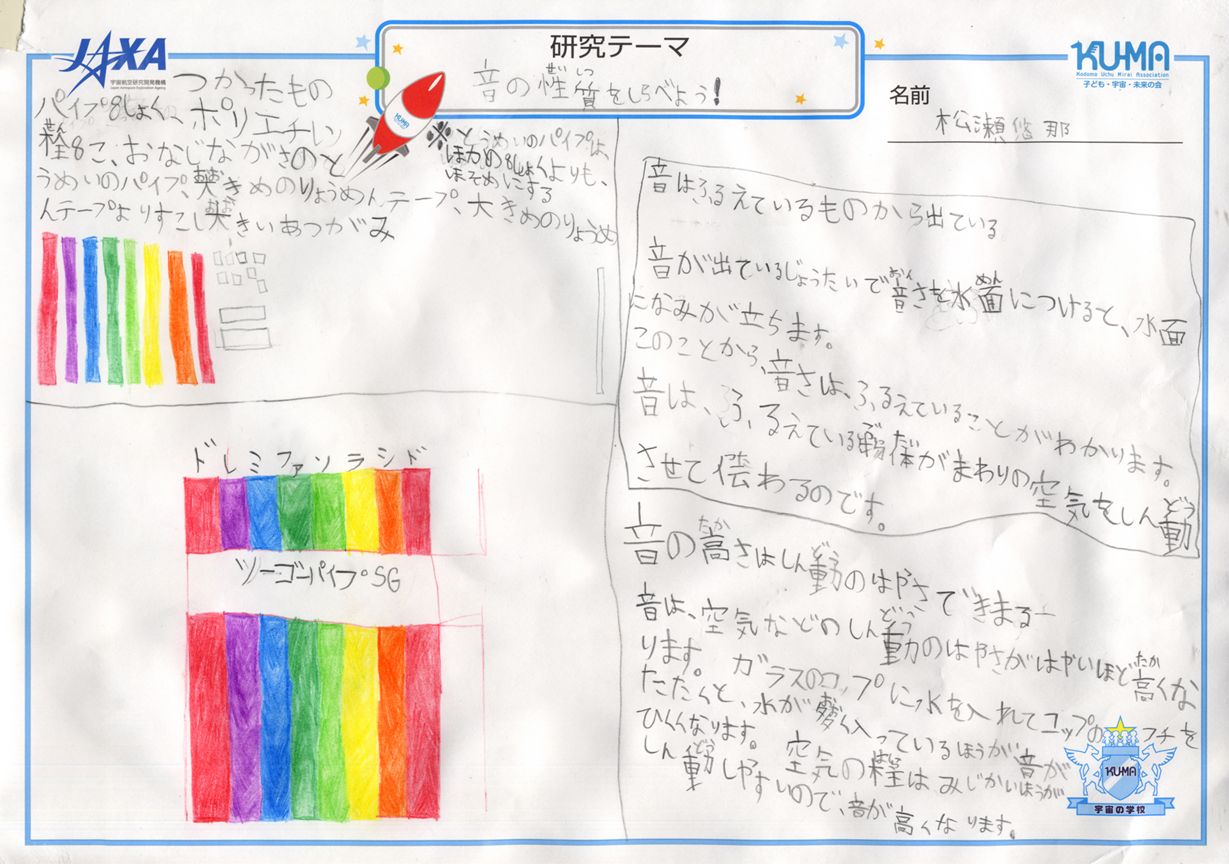 JAXA
宇宙航空研究開発機構
Japan Aerospace Exploration Agency
研究テーマ
音の性質をしらべよう!
せい しつ
KUMA
Kodomo Uchu Mirai Association
子ども・宇宙・未来の会
名前
松瀬悠那
つかったもの
パイプ8しょく、ポリエチレン
栓8こ、おなじながさのと
うめいのパイプ、大きめのりょうめんテープ、大きめのりょうめ
んテープよりすこし大きいあつがみ
※とうめいのパイプは、
ほかの8しょくよりも、
ほそめにする
KUMA
ドレミファソラシド
ツーゴーパイプSG
音はふるえているものから出ている
音が出ているじょうたいで音さを水面につけると、水面
になみが立ちます。
このことから、音さは、ふるえていることがわかります。
音は、ふるえている物体がまわりの空気をしん動
させて伝わるのです。
音の高さはしん動のはやさできまるー
音は、空気などのしん動のはやさがはやいほど高くな
ります。ガラスのコップに水を入れてコップのフチを
たたくと、水が多く入っているほうが音が
ひくくなります。空気の柱はみじかいほうが
しん動しやすいので、音が高くなります。
KUMA
宇宙の学校